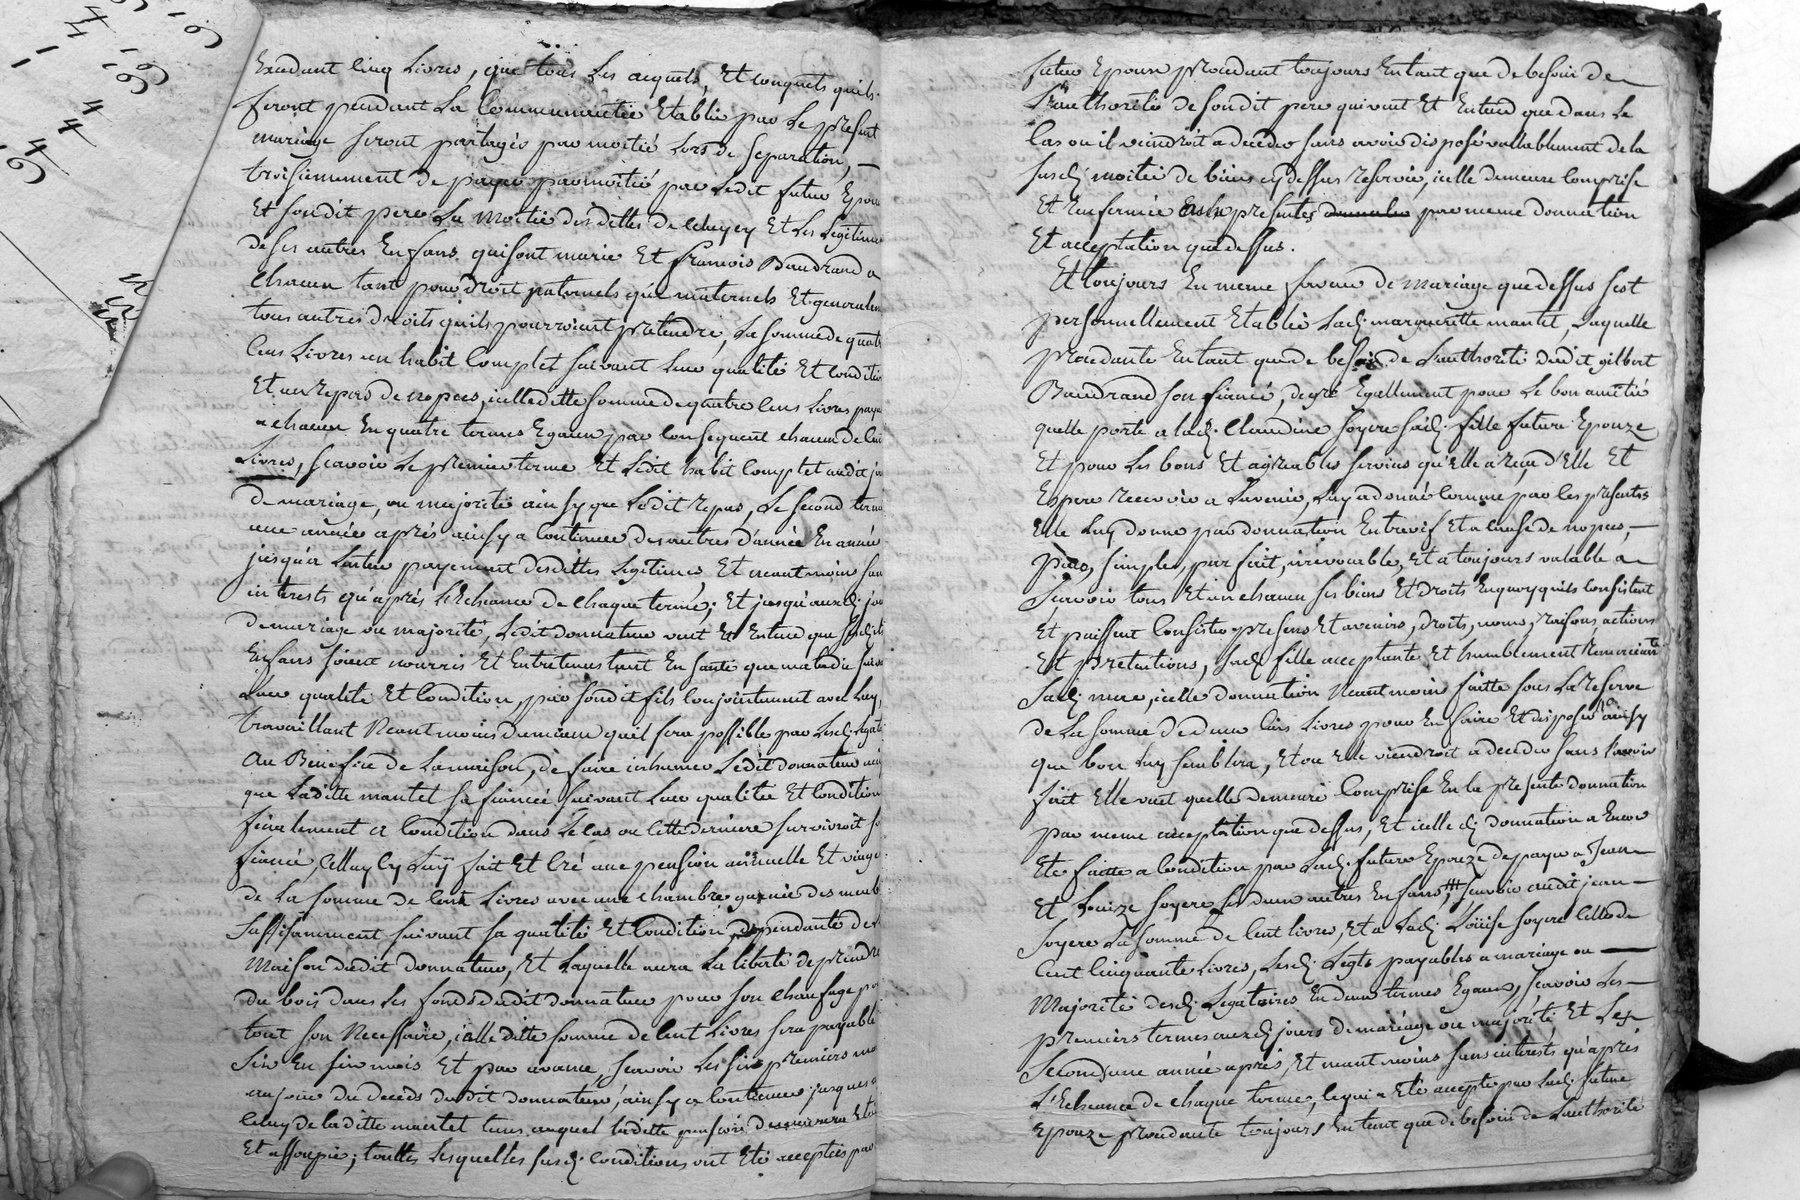 Excedant Cinq Livres, que tous Les acquets, Et conquets quils
feront pendant La Communautée Etablie par Le present
mariage seront partagés par moitié Lors de Separation, —
troisiemement de payer par moitié par Ledit futur Epoux
Et Sondit pere La Moitié des dettes de celuy cy Et Les Legitimes
de ses autres Enfans qui sont marie Et francois Baudrand a
Chacun tant pour droit paternels que maternels Et generalem
tous autres droits quils pourroient pretendre, La Somme de quatre
Cens Livres un habit Complet suivant Leur qualité Et Conditio
Et un repas de nopces, icelle ditte somme de quatre Cens Livres paya
a chacun En quatre termes Egaux par Consequent chacun de Cent
Livres, scavoir Le premier terme Et Ledit habit Complet audit jo
de mariage, ou majorité ainsy que Ledit repas, Le Second terme
une année après ainsy a Continuer des autres d'année En année
jusqu'a L'entier payement desdittes Legitimes, Et neantmoins san
interests qu'après L'Echeance de Chaque terme; Et jusqu'auxdt. jou
de mariage ou majorité, Ledit donnateur veut Et Entend que sesdits
Enfans soient nourris Et Entretenus tant En Santé que maladie suiva
Leur qualité Et Condition, par Sondit fils Conjointement avec Luy,
travaillant Neantmoins du mieux qu'il sera possible par Lesdt. Legati
Au Benefice de La maison, de faire inhumer Ledit donnateur ain
que Laditte mantet Sa fiancée suivant Leur qualitée Et Condition
finalement a Condition dans Le Cas ou Cette derniere survivroit so
fiancé, Celluy Cy Luy fait Et Cré une pension annuelle Et viage
de La Somme de Cent Livres avec une chambre garnie des meub
Suffisamment suivant sa qualité Et Condition, dependante de L
Maison dudit donnateur, Et Laquelle aura La liberté de prendre
du bois dans Les fonds dudit donnateur pour Son Chaufage po
tout Son Necessaire, icelle ditte somme de Cent Livres sera payable
Six En Six mois Et par avance, scavoir Les Six premiers mo
au jour du deceds dudit donnateur, ainsy a Continuer jusques a
Celuy de laditte mantet tems auquel laditte pension demeurera Etei
Et assoupie; touttes Lesquelles susdt. Conditions ont Eté acceptées par
futur Epoux procedant toujours Entant que de besoin de
L'authorité de Sondit pere qui veut Et Entend que dans Le
Cas ou il viendroit a deceder sans avoir disposé vallablement de la
susdt. moitié de biens cy dessus reservée, icelle demeure Comprise
Et Enfermée Es presentes par meme donnation
Et acceptation que dessus.
Et toujours En meme faveur de Mariage que dessus s'est
personnellement Etablie Ladt. marguerite mantet, Laquelle
procedante Entant que de besoin de L'authorité dudit gilbert
Baudrand son fiancé, de gré Egallement pour Le bon amitié
quelle porte a ladt. Claudine Soyere sadt. fille future Epouze
Et pour Les bons Et agreables services qu'Elle a recu d'Elle Et
Espere recevoir a L'avenir, Luy a donné Comme par les presentes
Elle Luy donne par donnation Entrevif Et a Cause de nopces, —
pure, simple, parfait, irrevocable, Et a toujours valable a
Scavoir tous Et un chacun ses biens Et Droits En quoy quils Consistent
Et puissent Consister presens Et avenirs, droits, noms, raisons, actions
Et pretentions, sadt. fille acceptante Et humblement Remerciante
Sadt. mere, icelle donnation Neantmoins faitte Sous La Reserve
de La Somme de deux Cens Livres pour En faire Et disposer ainsy
que bon Luy Semblera, Et ou Elle viendroit a deceder sans L'avoir
fait Elle veut quelle demeure Comprise En la presente donnation
par meme acceptation que dessus, Et icelle dt. donnation a Encore
Eté faitte a Condition par Ladt. future Epouze de payer a Jean
Et Louize Soyere Ses deux autres Enfans, scavoir audit jean —
Soyere La Somme de Cent livres, Et a Ladt. Loüise Soyere Celle de
Cent Cinquante Livres, Lesdt. Legts payables a mariage ou —
Majorité desdt. Legataires En deux termes Egaux, scavoir Les —
premiers termes auxdt. jours de mariage ou majorité, Et Les
Seconds une année après, Et neantmoins sans interests qu'après
L'Echeance de chaque terme, Ce qui a Eté accepté par Ladt. future
Epouze procedante toujours Entant que de besoin de L'authorité